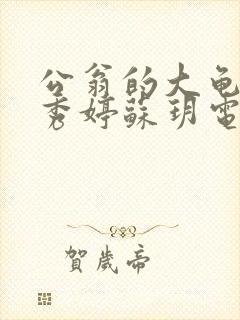 公翁的大龟
秀婷蘇玥電
賀歲帝